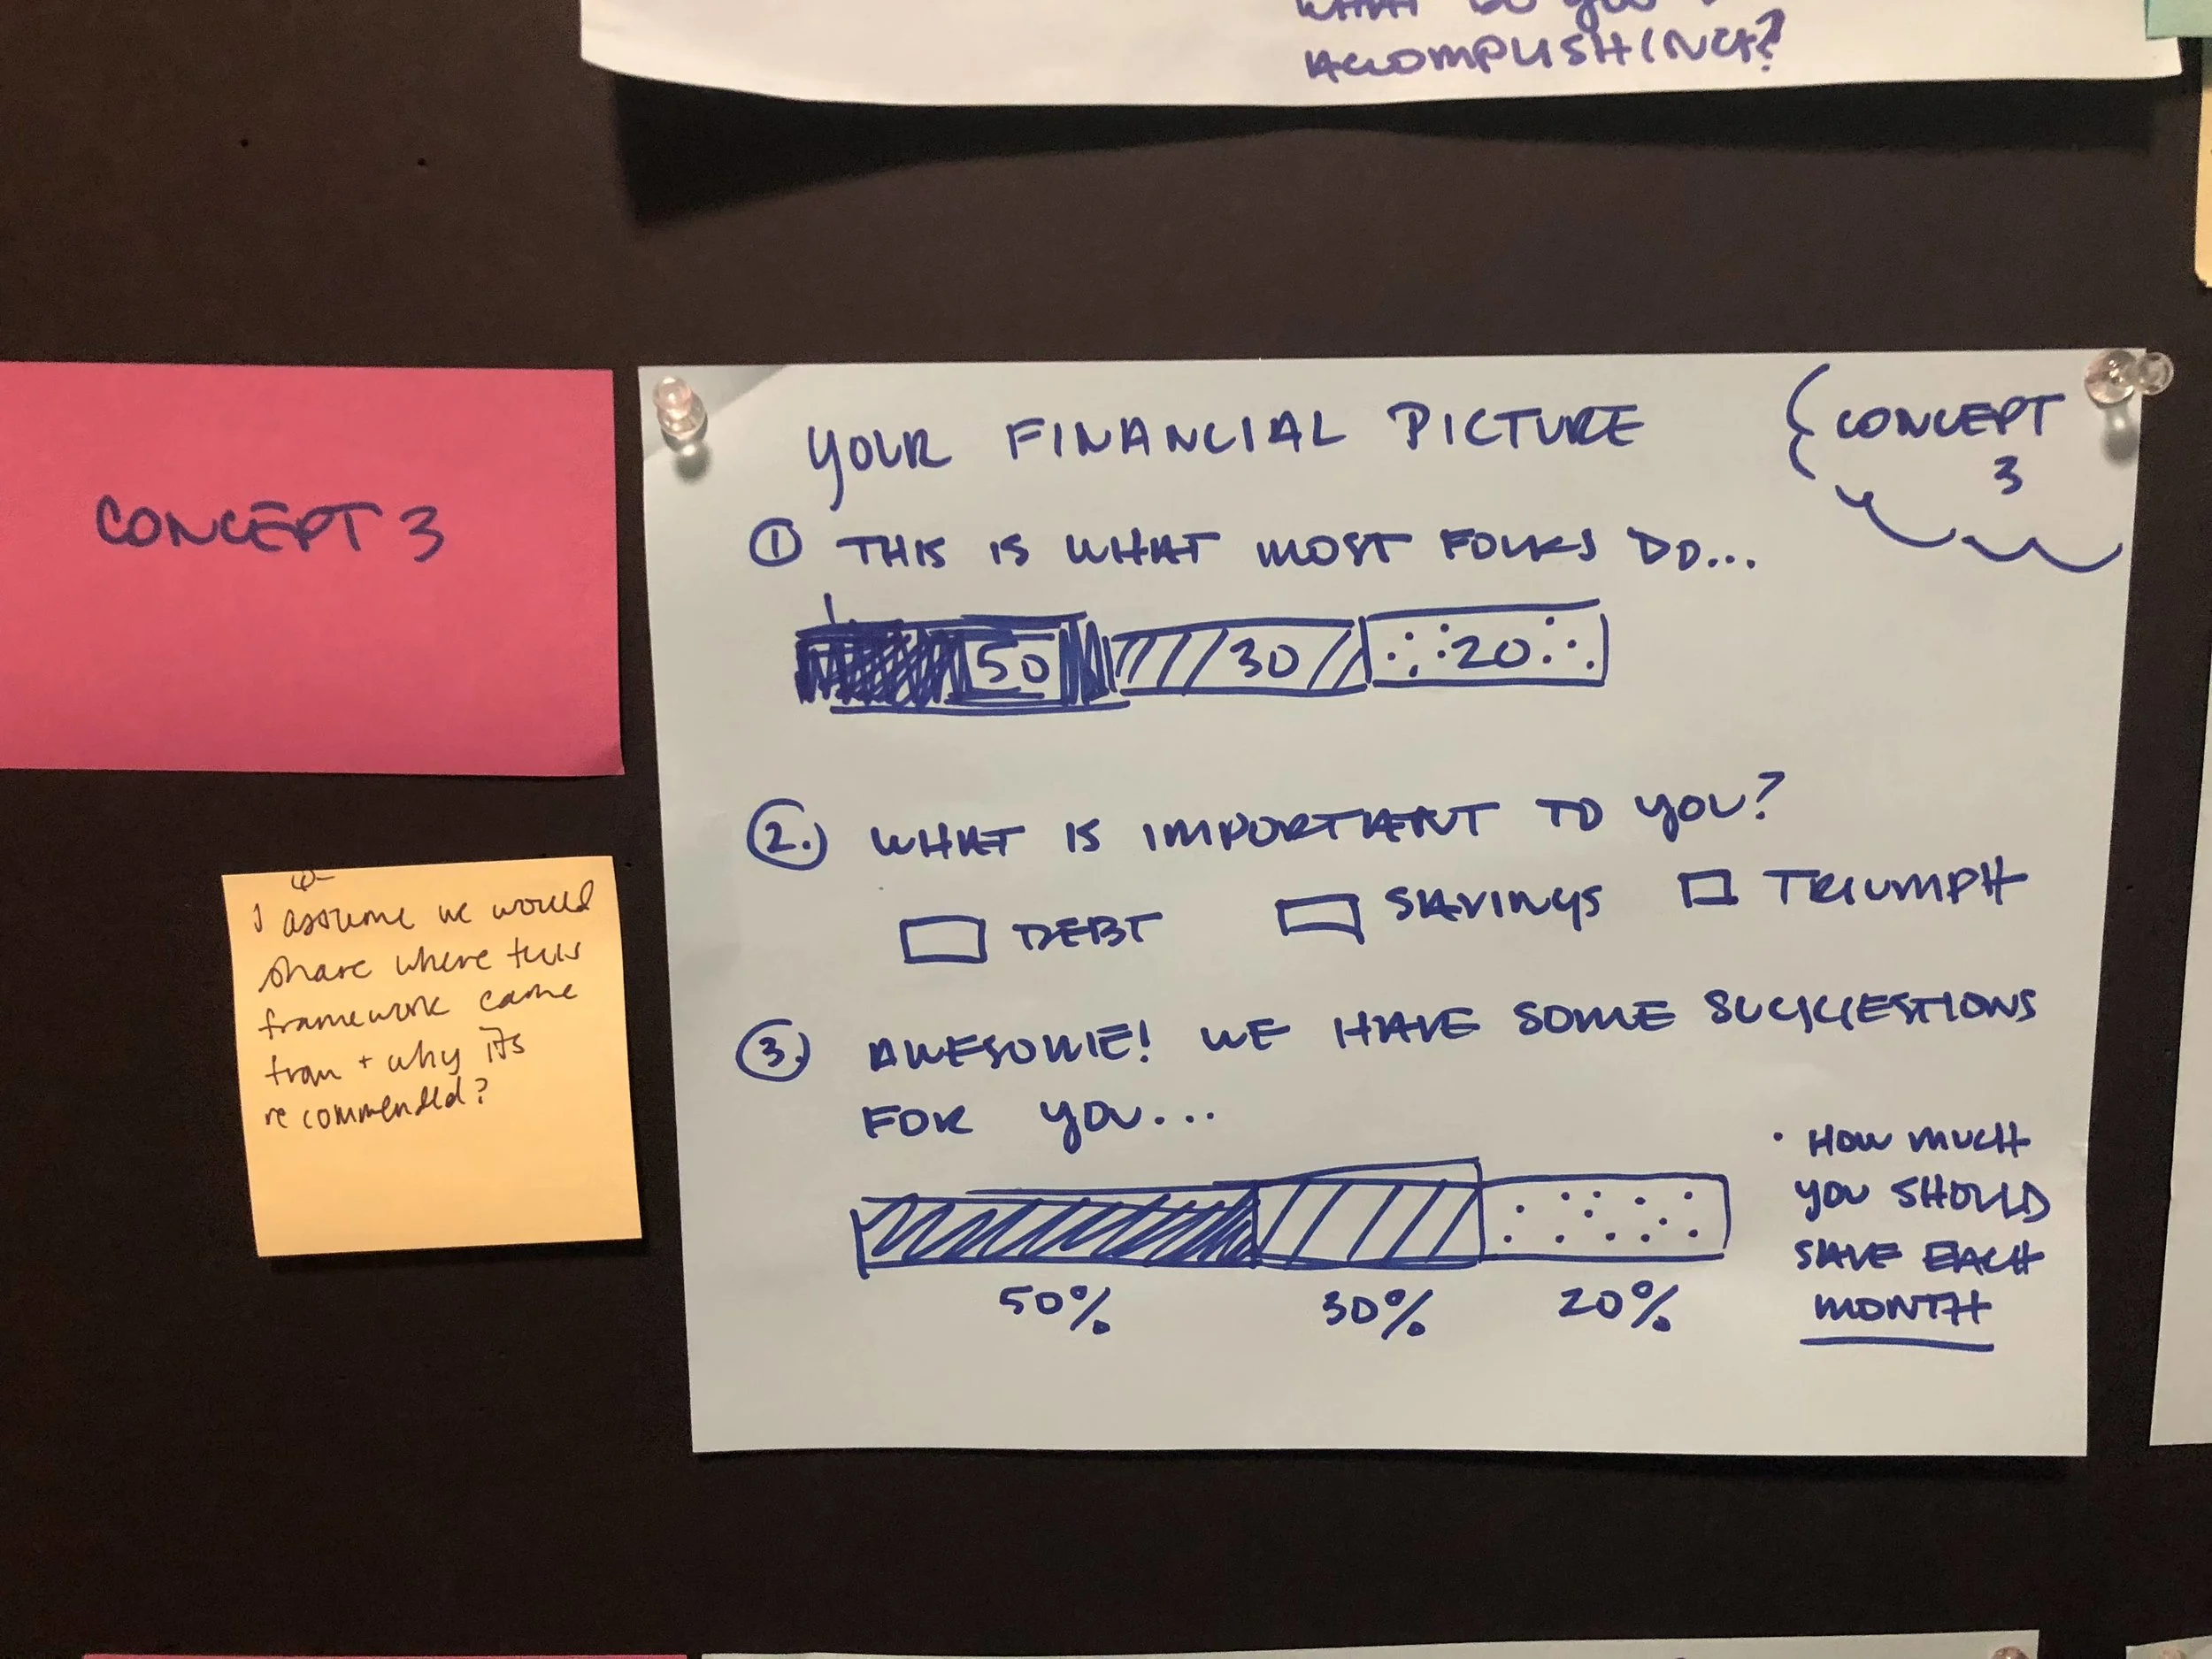 WHAT DO YOU
ACCOMPLISHING?
CONCEPT 3
YOUR FINANCIAL PICTURE
CONCEPT
3
① THIS IS WHAT MOST FOLKS DO...
50 30 20
②. WHAT IS IMPORTANT TO YOU?
DEBT SAVINGS TRIUMPH
③. AWESOME! WE HAVE SOME SUGGESTIONS
FOR YOU...
50% 30% 20%
• HOW MUCH
YOU SHOULD
SAVE EACH
MONTH
I assume we would
share where this
framework came
from + why it's
recommended?